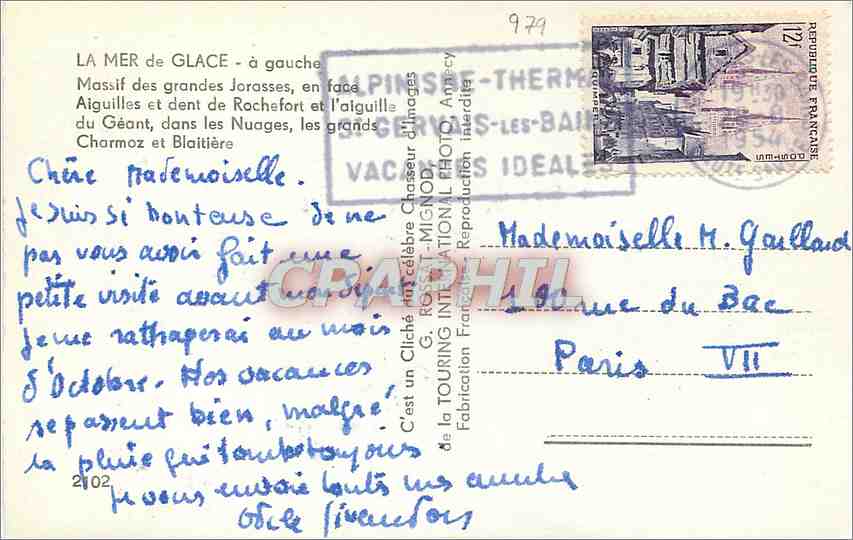 979
LA MER de GLACE - à gauche
Massif des grandes Jorasses, en face
Aiguilles et dent de Rochefort et l'aiguille
du Géant, dans les Nuages, les grands
Charmoz et Blaitière
ALPINISME-THERMA
ST GERVAIS-LES-BAINS
VACANCES IDÉALES
1954
12f
REPUBLIQUE FRANÇAISE
POSTES
QUIMPER
Chère Mademoiselle.
Je suis si honteuse de ne
pas vous avoir fait une
petite visite avant mon départ
Je me rattraperai au mois
d'Octobre. Nos vacances
se passent bien, malgré
la pluie qui tombe toujours
Je vous envoie toutes mes
Odile
2102
C'est un Cliché du célèbre Chasseur d'Images
G. ROSSAT-MIGNOD
de la TOURING INTERNATIONAL PHOTO, Annecy
Fabrication Française - Reproduction interdite
CPAPHIL
Mademoiselle M. Gaillard
100 rue du Bac
Paris VII